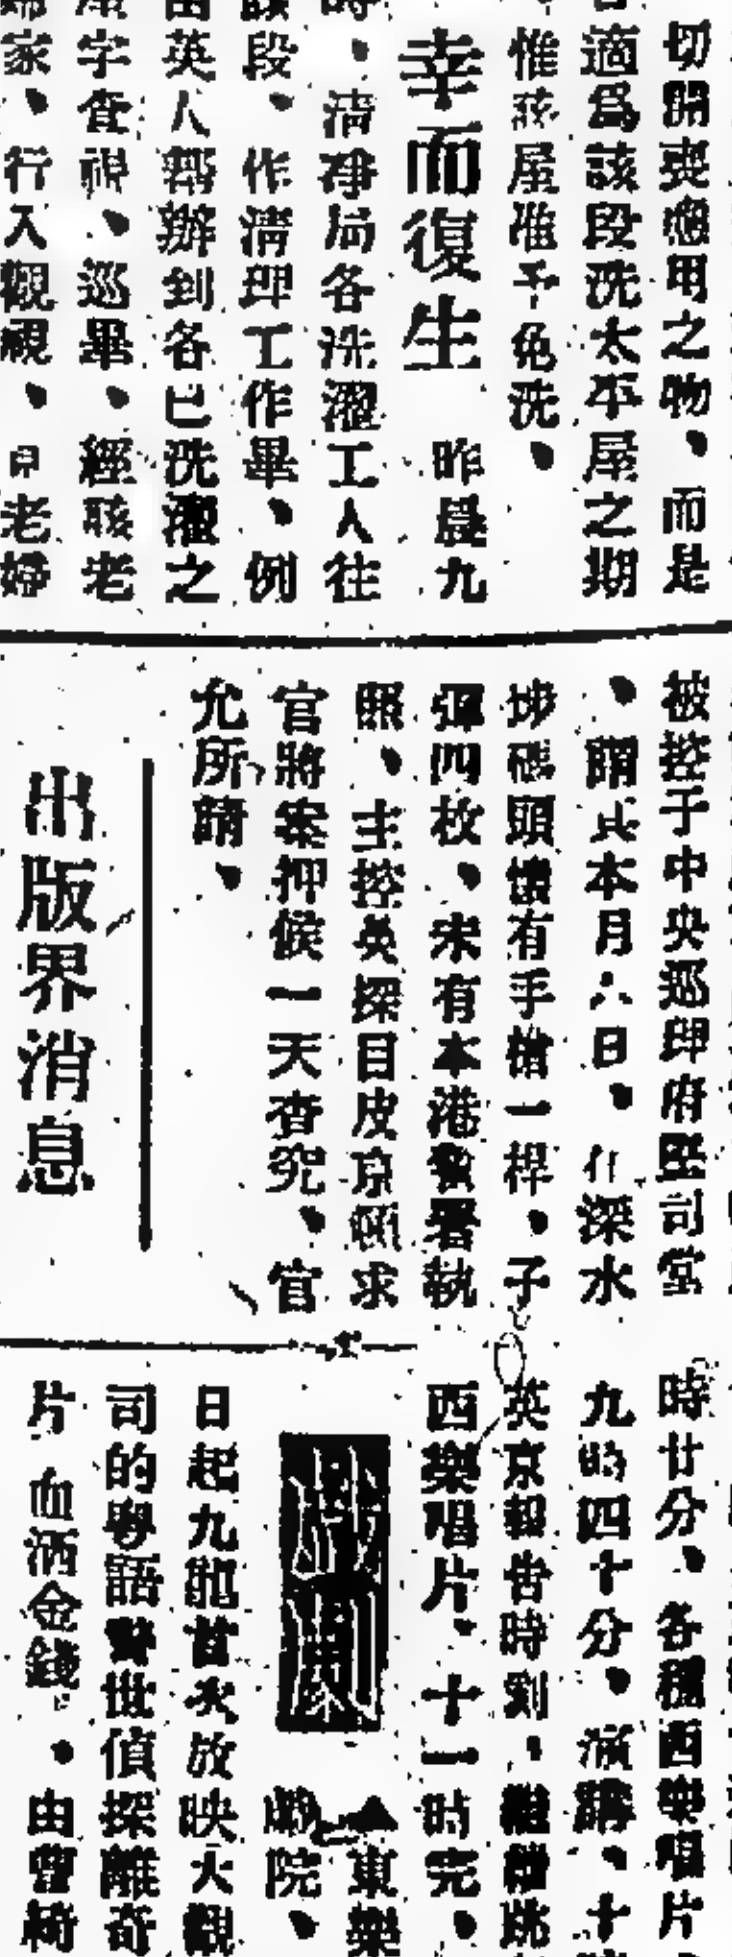 切開喪應用之物、而是
適爲該段洗太平屋之期
惟該屋准予免洗、
幸而復生　昨晨九
時、清凈局各洗濯工人往
該段、作清理工作畢、例
由英人幫辦到各已洗濯之
字查視、巡畢、經該老
家、行入觀視、老婦
被控于中央巡理府堅司堂
、謂其本月六日、在深水
埗碼頭懷有手槍一桿、子
彈四枚、未有本港警署執
照、主控英探目皮京頓求
官將案押候一天查究、官
允所請、
出版界消息
時廿分、各種西樂唱片
九時四十分、演講、十
英京報告時刻、繼續跳
西樂唱片、十一時完、
戲劇
▲東樂
戲院、
日起九龍首次放映大觀
司的粵語警世偵探離奇
片 血洒金錢 、由曹綺